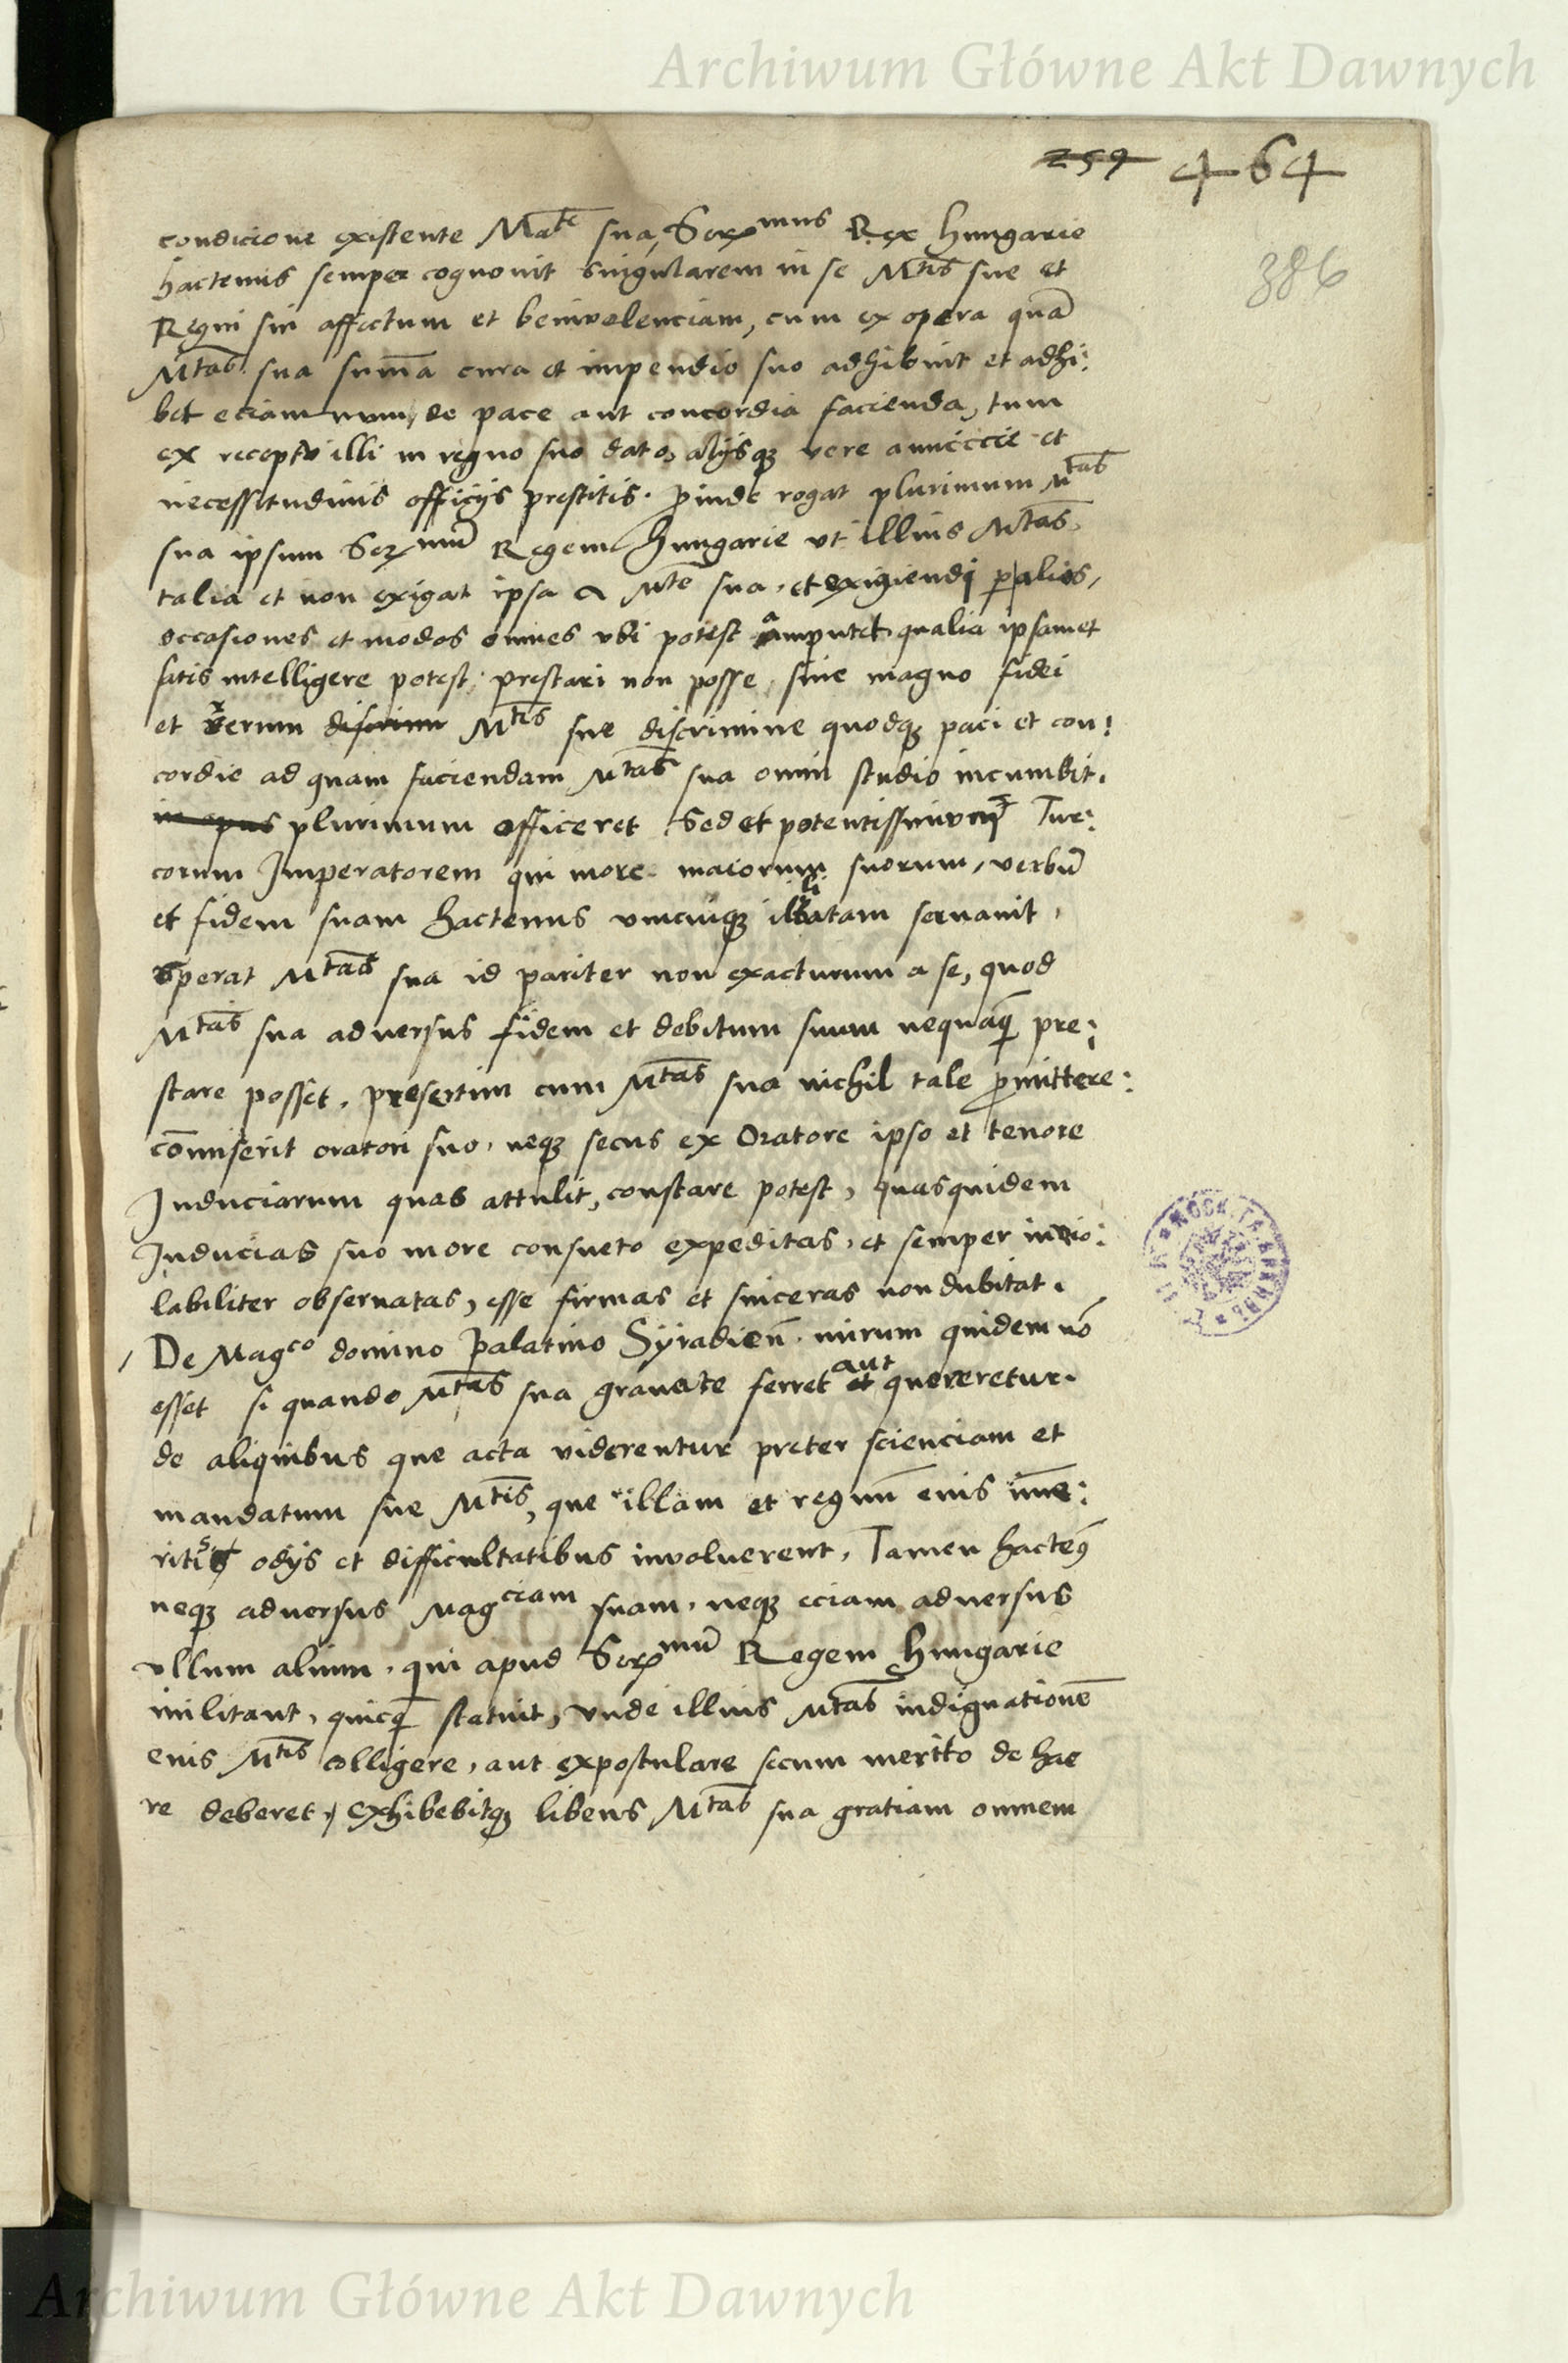 Archiwum Główne Akt Dawnych
259 464
386
condicione existente Mate sua, Sermus Rex Hungarie
hactenus semper cognovit singularem in se Mtis sue et
Regni sui affectum et benivolenciam, cum ex opera quā
Mtas sua sum̄a cura et impendio suo adhibuit et adhi:
bet eciam num, de pace aut concordia facienda, tum
ex receptu illi in regno suo dato, alijsqꝫ vere amiccie et
necessitudinis officijs prestitis. ꝓinde rogat plurimum Mtas
sua ipsum Sermū Regem Hungarie ut illius Mtas
talia et non exigat ipsa a Mte sua, et exigendi ꝑ alios,
occasiones et modos omnes ubi potest amputet, qualia ipsamet
satis intelligere potest, prestari non posse, sine magno fidei
et rerum discrimi Mtis sue discrimine quodqꝫ paci et con:
cordie ad quam faciendam Mtas sua omni studio incumbit.
plurimum officeret. Sed et potentissimum Tur:
corum Imperatorem qui more maiorum suorum, verbū
et fidem suam hactenus unicuiqꝫ illibatam servavit,
sperat Mtas sua id pariter non exacturum a se, quod
Mtas sua adversus fidem et debitum suum nequāq̄ pre:
stare posset, presertim cum Mtas sua nichil tale ꝓmittere:
com̄iserit oratori suo, neqꝫ secus ex Oratore ipso et tenore
Induciarum quas attulit, constare potest, quasquidem
Inducias suo more consueto expeditas, et semper invio:
labiliter observatas, esse firmas et sinceras non dubitat.
De Magco domino Palatino Syradien̄. mirum quidem nō
esset si quando Mtas sua gravate ferret et aut quereretur.
de aliquibus que acta viderentur preter scienciam et
mandatum sue Mtis, que illam et regnū eius im̄e:
ritis odijs et difficultatibus involverent, Tamen hacten9
neqꝫ adversus Magciam suam, neqꝫ eciam adversus
ullum alium, qui apud Sermū Regem Hungarie
militant, quicq̄ statuit, unde illius Mtas indignationē
eius Mtis colligere, aut expostulare secum merito de hac
re deberet, exhibebitqꝫ libens Mtas sua gratiam omnem
Archiwum Główne Akt Dawnych